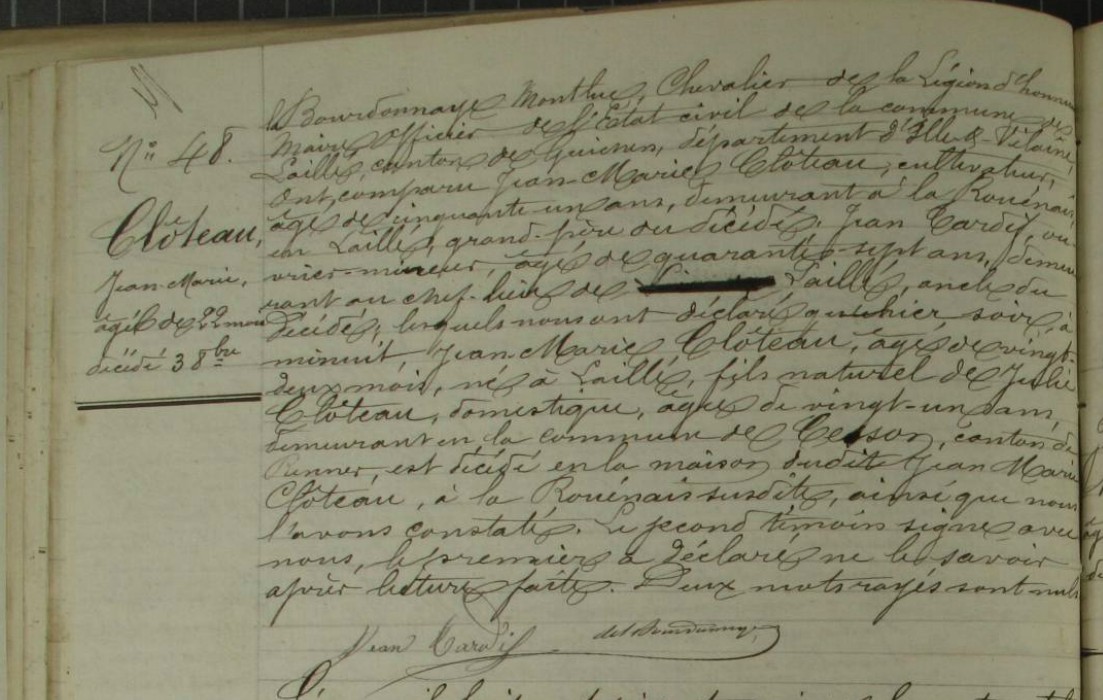 N° 48.
Clôteau,
Jean-Marie,
agé de 22 mois
décédé 3 8bre
la Bourdonnaye Montluc, Chevalier de la Légion d'honneur
Maire officier de l'Etat civil de la commune de
Laillé, canton de Guichen, département d'Ille-&-Vilaine,
Ont comparu Jean-Marie Clôteau, cultivateur,
âgé de cinquante-un ans, demeurant à la Rouénais,
en Laillé, grand-père du décédé, Jean Tardif, ou-
vrier-mineur, âgé de quarante-sept ans, demeu-
rant au chef-lieu de Laillé, oncle du
décédé; lesquels nous ont déclaré qu'hier soir, à
minuit, Jean-Marie Clôteau, âgé de vingt-
deux mois, né à Laillé, fils naturel de Julie
Clôteau, domestique, âgée de vingt-un ans,
demeurant en la commune de Cesson, canton de
Rennes, est décédé en la maison dudit Jean Marie
Clôteau, à la Rouénais susdite, ainsi que nous
l'avons constaté. Le second témoin signe avec
nous, le premier a déclaré ne le savoir
après lecture faite. Deux mots rayés sont nuls
Jean Tardif